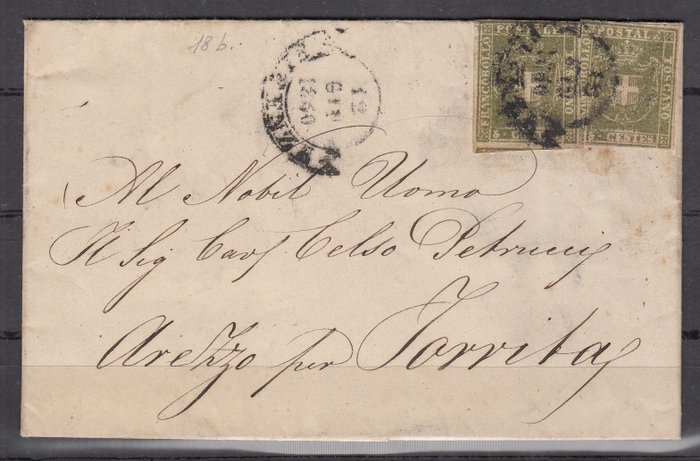 18 b.
12
GIU
1860
FRANCOBOLLO
POSTALE
5 CENT
POSTAL
TOSCANO
5 CENTES
12
GIU
1860
Al Nobil Uomo
Il Sig Cav Celso Petrucci
Arezzo per Torrita